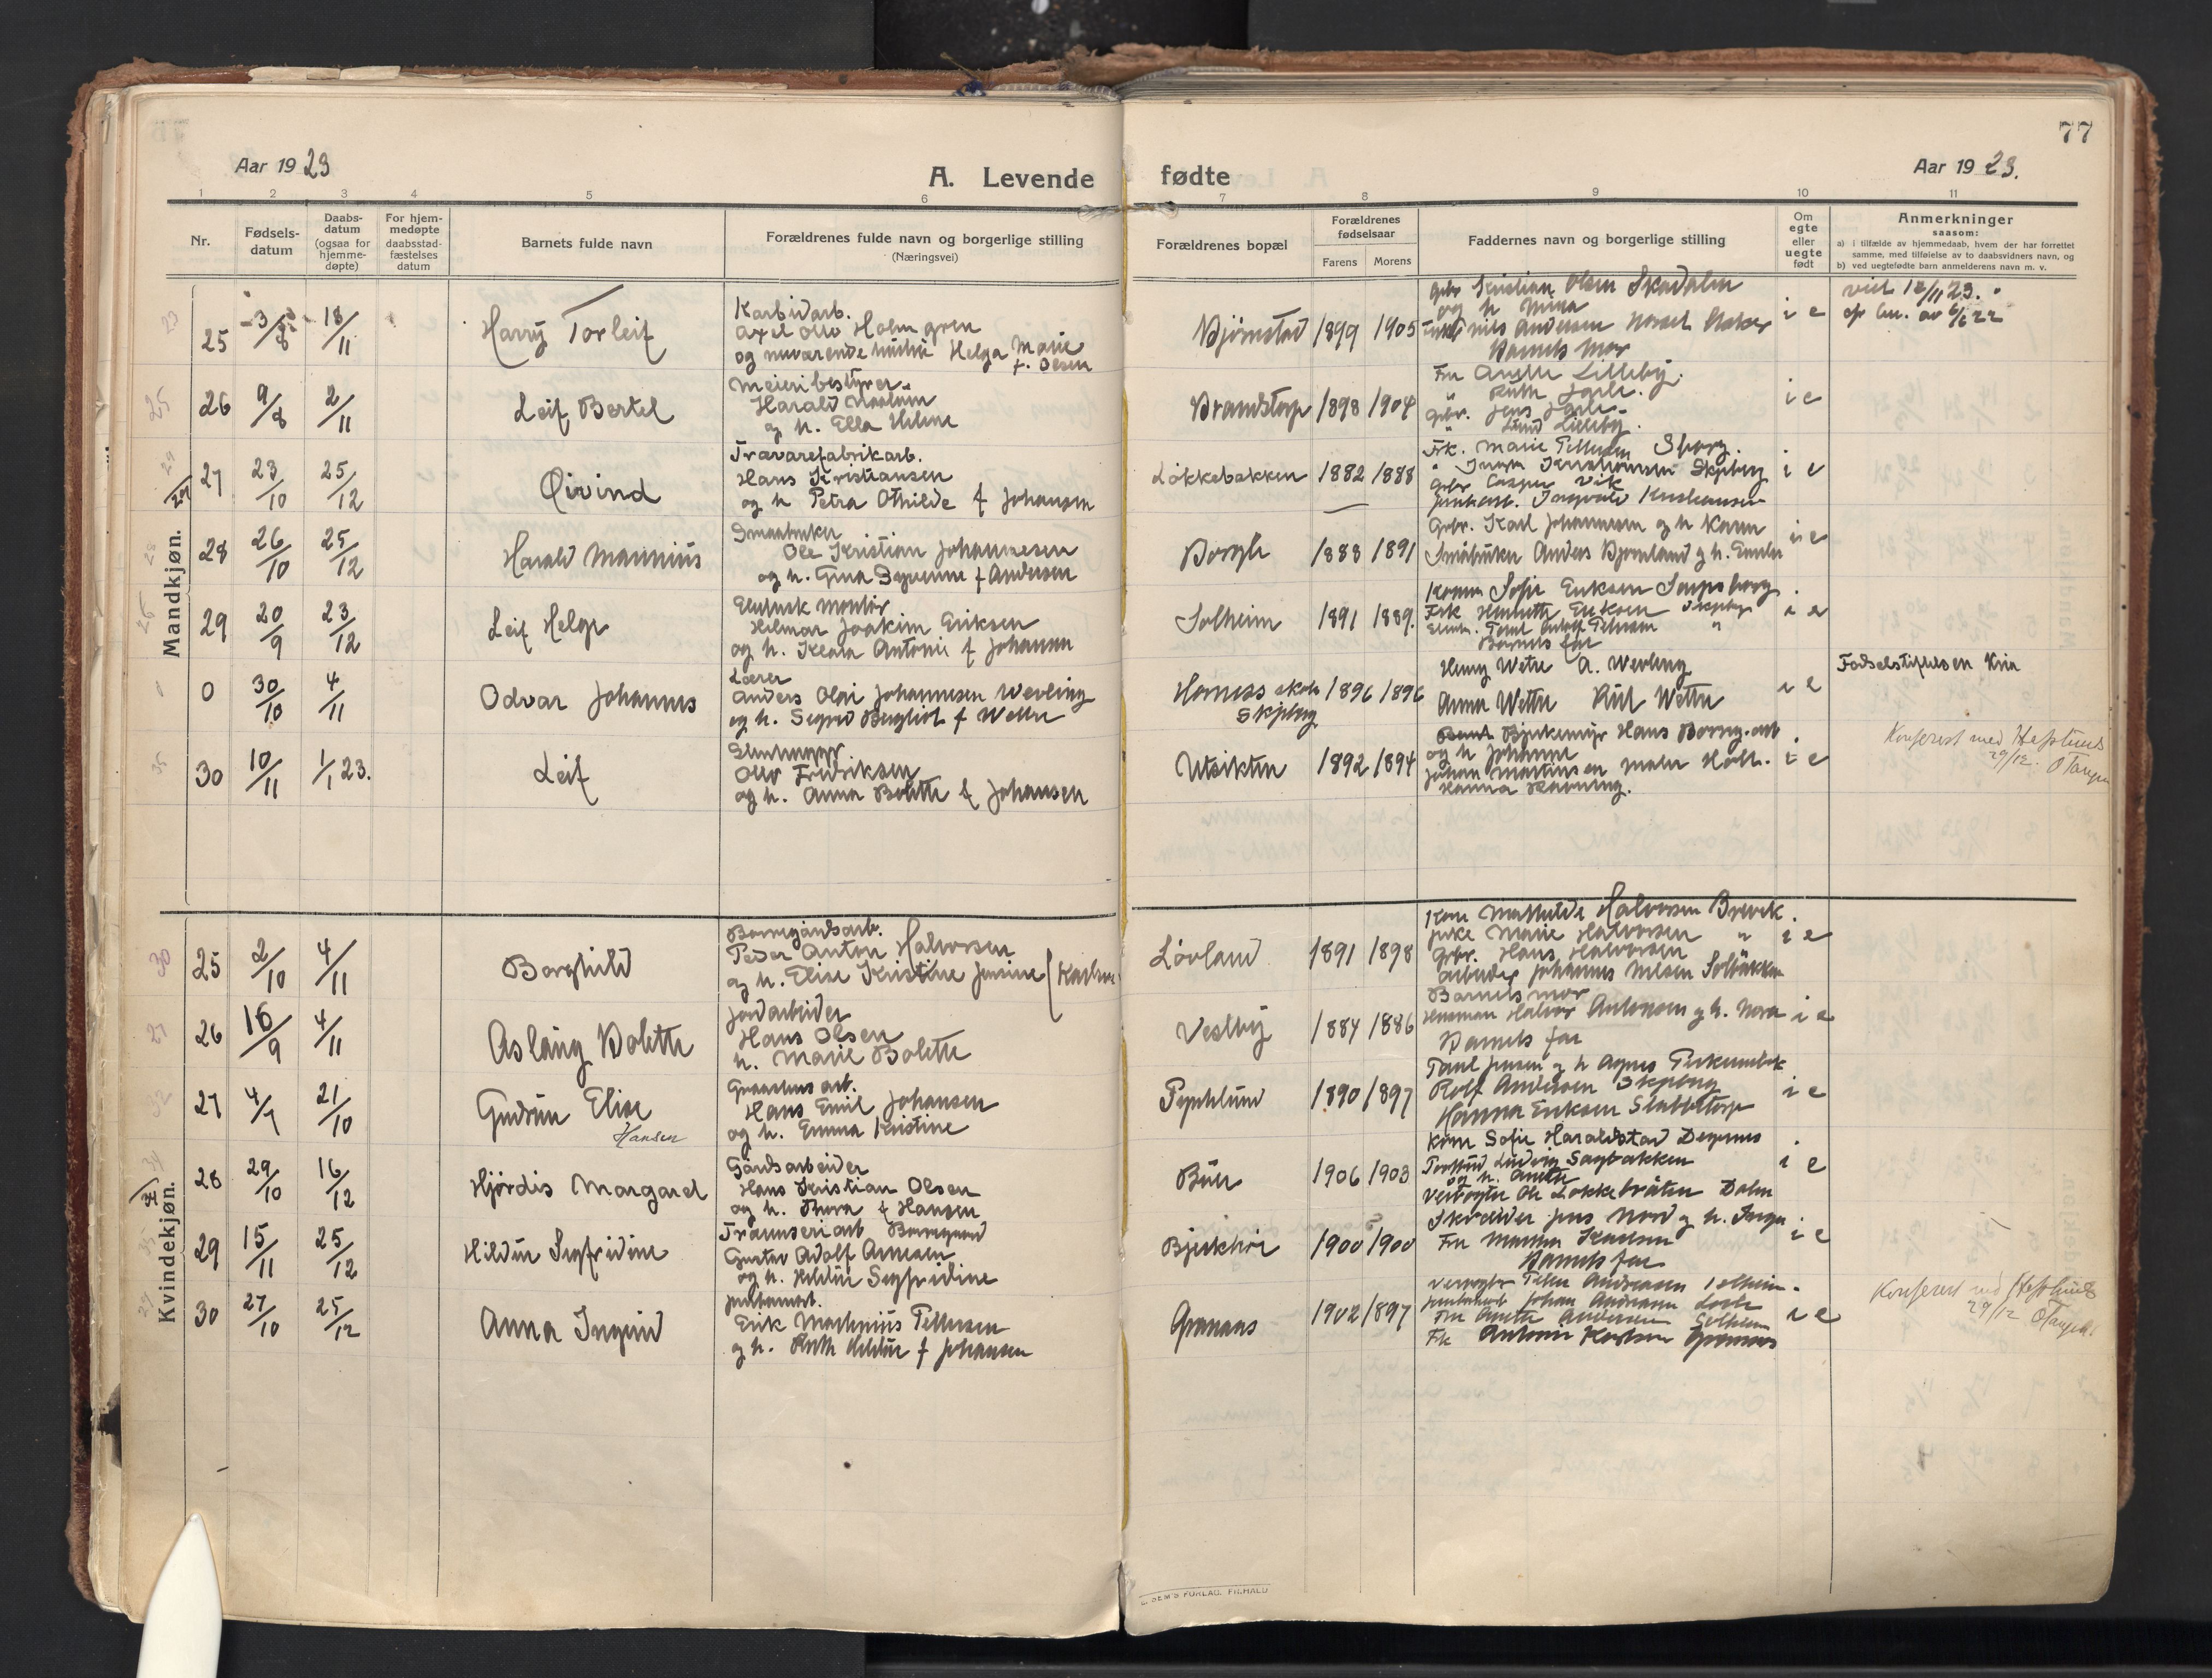 77
Aar 1923
A. Levende fødte
Aar 1923.
1 2 3 4 5 6 7 8 9 10 11
Nr.
Fødsels-
datum
Daabs-
datum
(ogsaa for
hjemme-
døpte)
For hjem-
medøpte
daabsstad-
fæstelses
datum
Barnets fulde navn
Forældrenes fulde navn og borgerlige stilling
(Næringsvei)
Forældrenes bopæl
Forældrenes
fødselsaar
Farens Morens
Faddernes navn og borgerlige stilling
Om
egte
eller
uegte
født
Anmerkninger
saasom:
a) i tilfælde av hjemmedaab, hvem der har forrettet
samme, med tilføielse av to daabsvidners navn, og
b) ved uegtefødte barn anmelderens navn m. v.
Mandkjøn.
25 3/8 18/11 Harry Torleif
Karbidarb.
Axel Otto Holmgren
og nuværende hustru Helga Marie
f. Olsen
Bjørnstad 1899 1905
Gbr Kristian Olsen Skadalen
og h Mina
Nils Andersen
Barnets mor
i e
viet 18/11 23.
26 9/8 2/11 Leif Bertel
Meieribestyrer
Harald
og h. Ella Helene
Brandstorp 1898 1904
Fru Anette Lilleby.
" Ruth Jarle.
Gbr. Jens Jarle.
" Lilleby.
i e
27 23/10 25/12 Øivind
Trævarefabrikarb.
Hans Kristiansen
og h Petra Othilde f Johansen
Løkkebakken 1882 1888
Frk. Marie Pettersen Sborg.
Skjeberg
Gbr Casper Vik
Ingvald Kristiansen
i e
28 26/10 25/12 Harald Mannius
Smaabruker
Ole Kristian Johannesen
og h. Gina f Andersen
Borgli 1883 1891
Gbr. Karl Johannesen og h Karen
Småbruker Anders Bjørnland g h. Emilie
i e
29 20/9 23/12 Leif Helge
Elektrisk montør
Hilmar Joakim Eriksen
og h. Klara Antonie f Johansen
Solheim 1891 1889.
Kona Sofie Eriksen Sarpsborg
Frk Henriette Eriksen Skjeberg
Barnets far
i e
0 30/10 4/11 Odvar Johannes
Lærer
Anders Olai Johannesen Werling
og h. Sigrid Bergliot f Wettre
Hornes skole
Skjeberg
1896 1896
Henry Wettre A. Werling
Anna Wettre Rut Wettre
i e
Fødselstiftelsen Kria
30 10/11 1/1 23. Leif
Otto Fredriksen
og h. Anna Bolette f Johansen
Utsikten 1892 1894
Hans Borreg.arb
og h Johanne
Johan Martinsen maler Holt.
Hanna
i e
Konferert med
29/12. O Tangen
Kvindekjøn.
25 2/10 4/11 Borghild
Borregaardsarb.
Peder Anton Halvorsen
og h. Elise Kristine Jensine
Løvland 1891 1898
Kone Mathilde Halvorsen Brevik.
Marie Halvorsen "
Gbr. Hans Halvorsen
Arbeider Johannes Nilsen Solbakken
i e
26 16/9 4/11 Aslaug Bolette
Jordarbeider
Hans Olsen
h. Marie Bolette
Vestby 1884 1886
Barnets mor
Husmann Halvor Antonsen g h. Nora
Barnets far
i e
27 4/7 21/10 Gudrun Elise
Hansen
Graastens arb.
Hans Emil Johansen
og h. Emma Kristine
1890 1897
Paul Jensen g h Agnes
Rolf Andersen Skjeberg
Hanna Eriksen Slabbetorp
i e
28 29/10 16/12 Hjørdis Margaret
Gårdsarbeider
Hans Kristian Olsen
og h. Thora f Hansen
Buer 1906 1903
Kone Sofie Haraldstad Degernes
Ludvig Sagbakken
og h. Anette
Ole Løkkebråten
i e
29 15/11 25/12 Hildur Sigfridine
Borregaard
Gustav Adolf Arnesen
og h. Hildur Sigfridine
1900 1900
Skredder Jens Nord g h. Inga
Fru Martha Karlsen
Barnets far
i e
30 27/10 25/12 Anna Ingrid
Erik Mathinius Pettersen
og h. Ruth Hildur f Johansen
Grananes 1902 1897
Petter Andreassen Solheim.
Johan Andreassen
Fru Anette Andersen Solheim
Frk Antonie Karlsen Grananes
i e
Konferert med
29/12 O Tangen
E. SEM'S FORLAG, FR.HALD